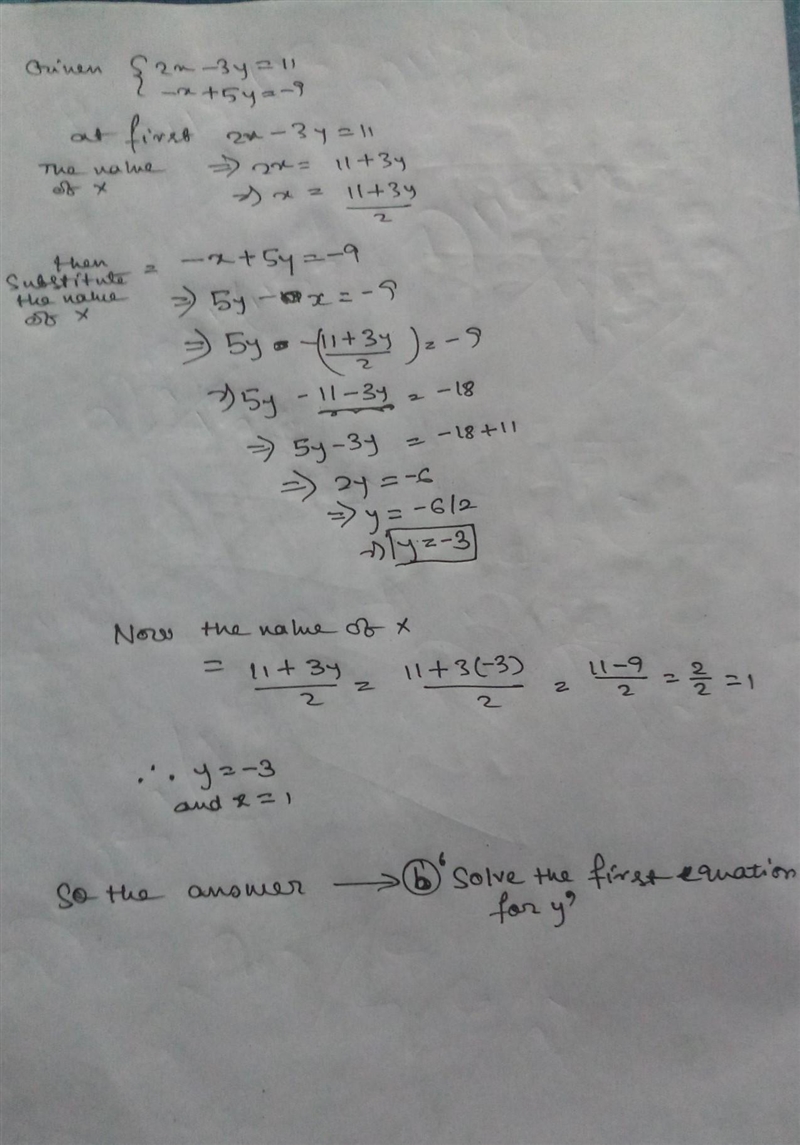 Given { 2x - 3y = 11
-x + 5y = -9
at first 2x - 3y = 11
The value of x ⇒ 2x = 11 + 3y
⇒ x = (11 + 3y)/2
then Substitute the value of x = -x + 5y = -9
⇒ 5y - x = -9
⇒ 5y - ((11 + 3y)/2) = -9
⇒ 5y - 11 - 3y = -18
⇒ 5y - 3y = -18 + 11
⇒ 2y = -6
⇒ y = -6/2
⇒ y = -3
Now the value of x
= (11 + 3y)/2 = (11 + 3(-3))/2 = (11 - 9)/2 = 2/2 = 1
∴ y = -3
and x = 1
So the answer → (b) 'Solve the first equation
for y'